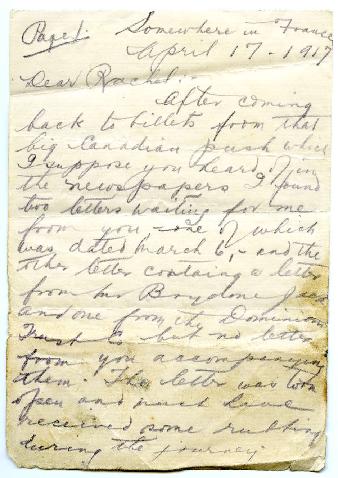 Page 1. Somewhere in France
April 17 - 1917
Dear Rachel:-
After coming
back to billets from that
big Canadian push which
I suppose you heard of in
the newspapers I found
two letters waiting for me
from you, one of which
was dated March 6, - and the
other letter containg a letter
from Mr
and one from the Dominion
Trust Co but no letter
from you accompanying
them. The letter was torn
open and must have
received some rubbing
during the journey